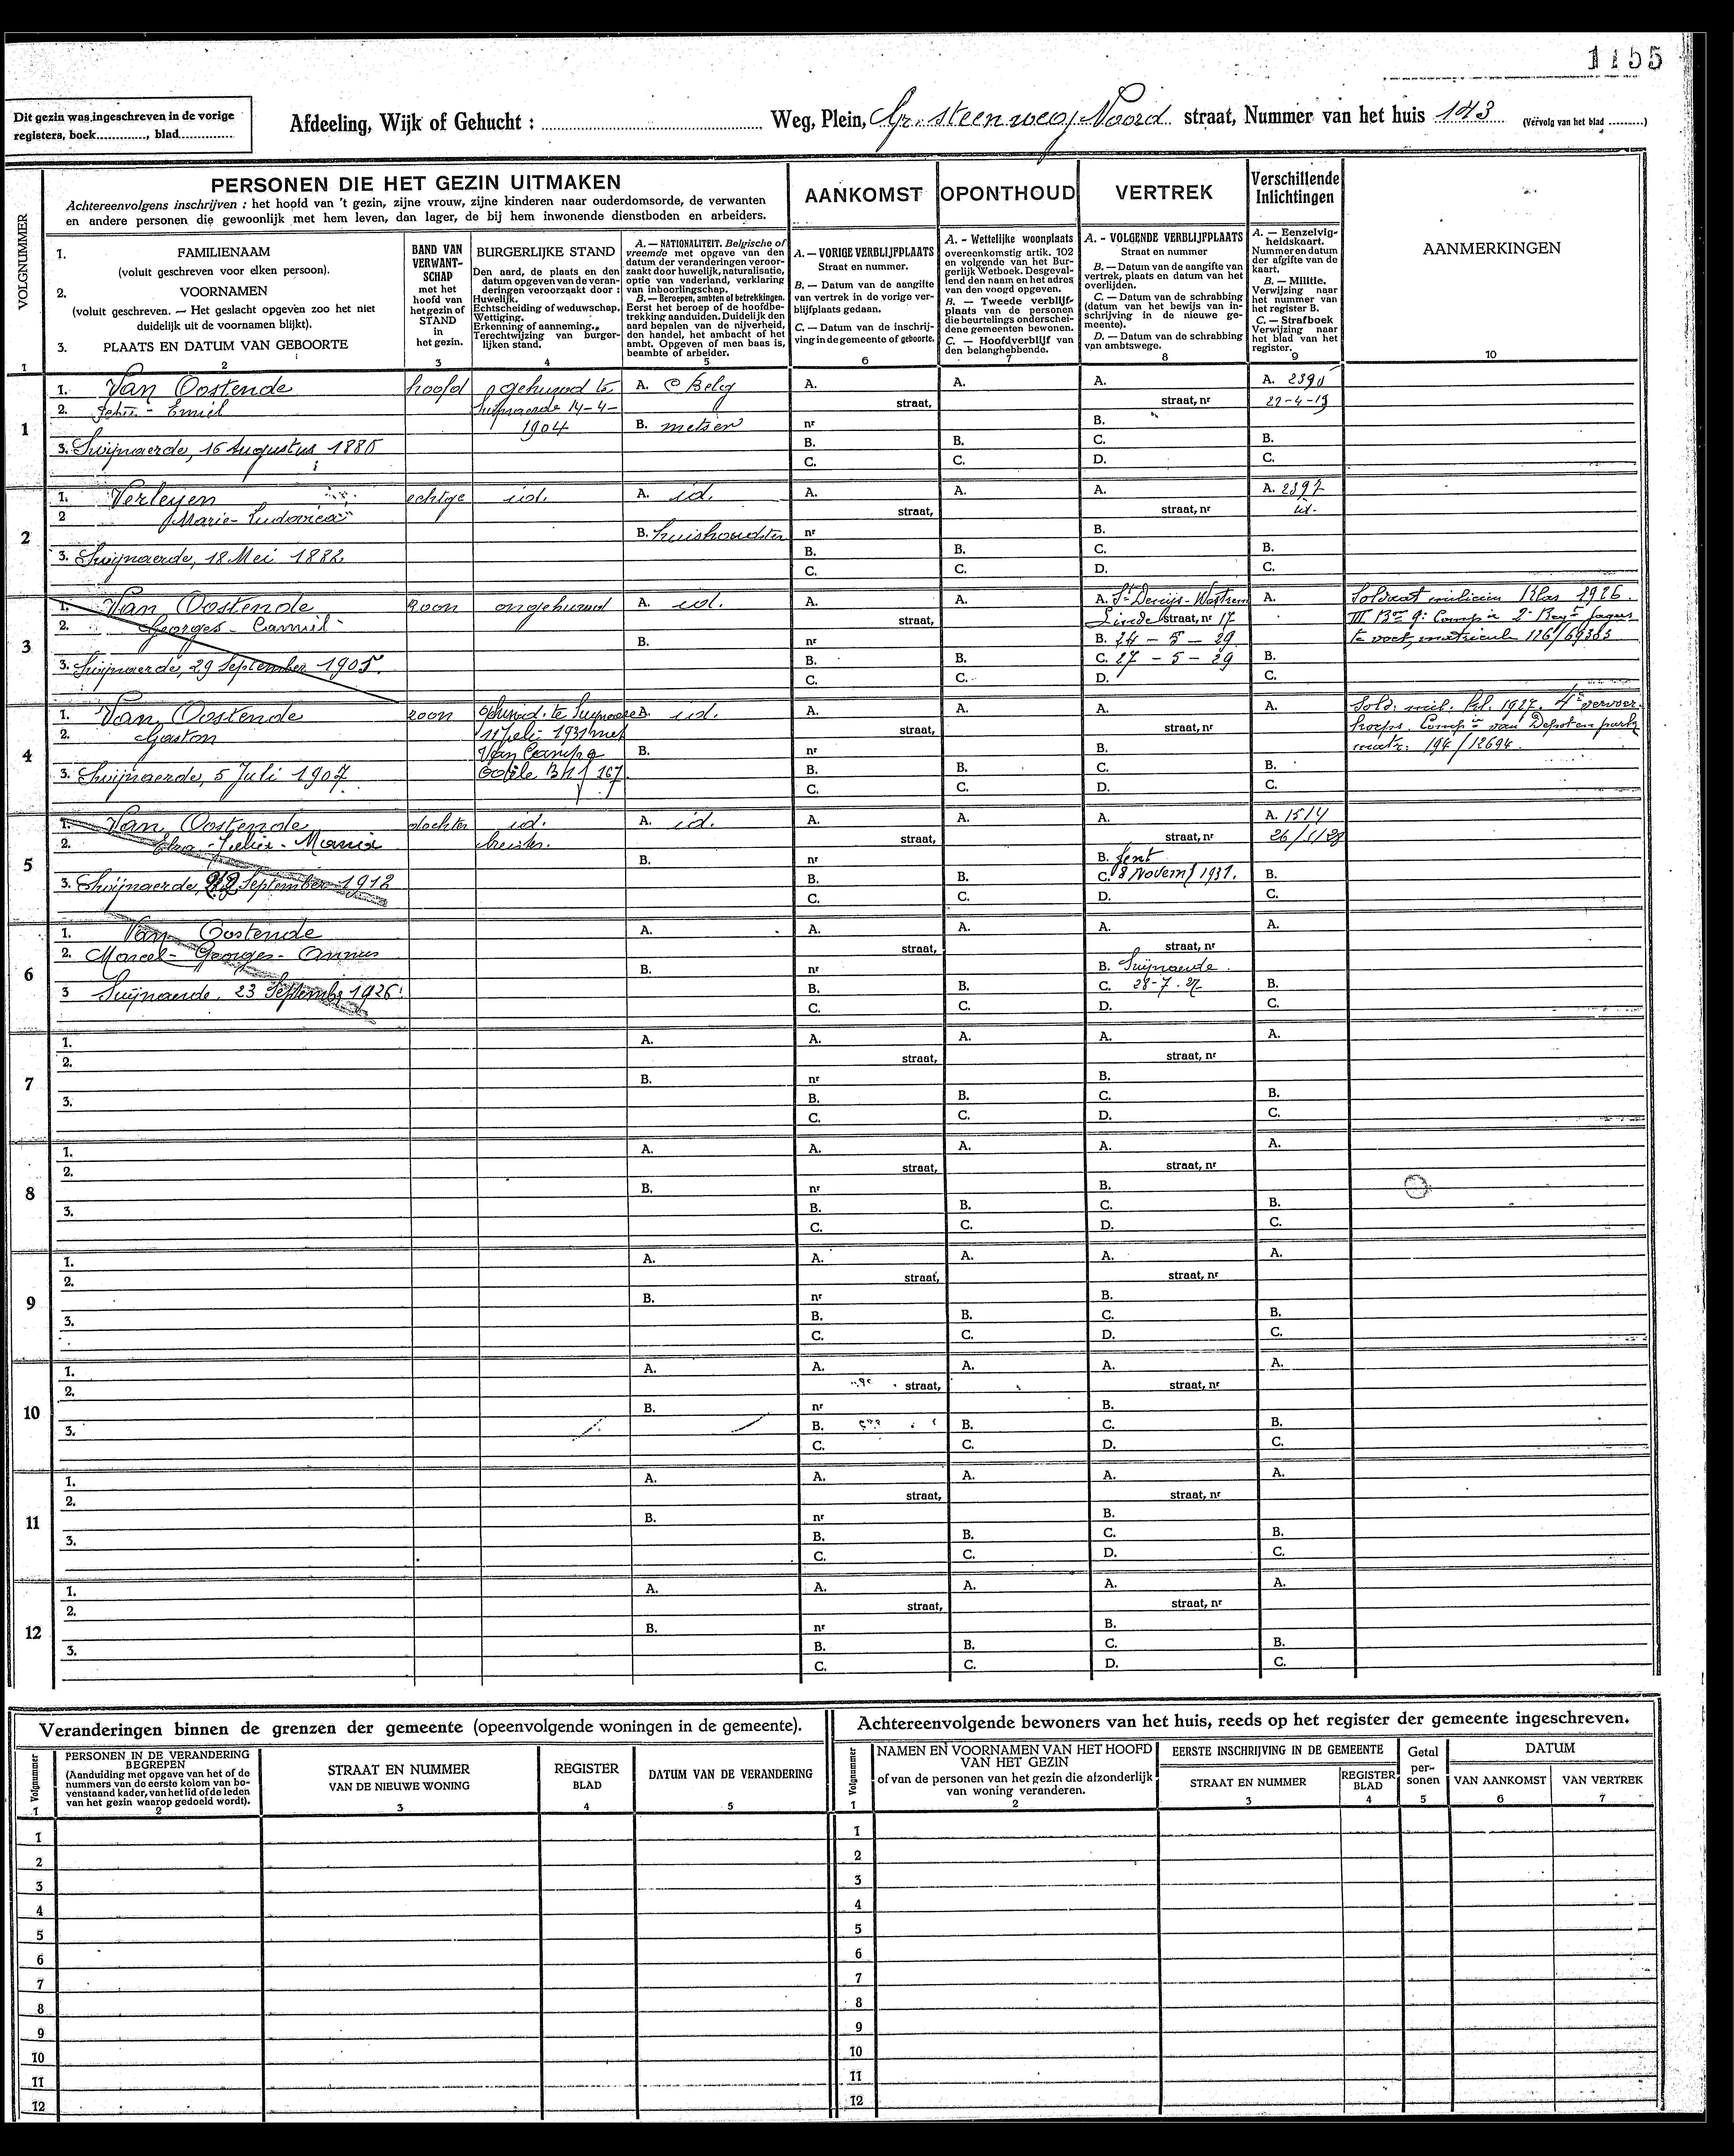 1155
Dit gezin was ingeschreven in de vorige
registers, boek............, blad............
Afdeeling, Wijk of Gehucht : ............ Weg, Plein, Gr. steenweg Noord straat, Nummer van het huis 143 (Vervolg van het blad .........)
VOLGNUMMER
PERSONEN DIE HET GEZIN UITMAKEN
Achtereenvolgens inschrijven : het hoofd van 't gezin, zijne vrouw, zijne kinderen naar ouderdomsorde, de verwanten
en andere personen die gewoonlijk met hem leven, dan lager, de bij hem inwonende dienstboden en arbeiders.
AANKOMST
OPONTHOUD
VERTREK
Verschillende
Inlichtingen
AANMERKINGEN
1. FAMILIENAAM
(voluit geschreven voor elken persoon).
2. VOORNAMEN
(voluit geschreven. — Het geslacht opgeven zoo het niet
duidelijk uit de voornamen blijkt).
3. PLAATS EN DATUM VAN GEBOORTE
BAND VAN
VERWANT-
SCHAP
met het
hoofd van
het gezin of
STAND
in
het gezin.
BURGERLIJKE STAND
Den aard, de plaats en den
datum opgeven van de veran-
deringen veroorzaakt door :
Huwelijk.
Echtscheiding of weduwschap.
Wettiging.
Erkenning of aanneming.
Terechtwijzing van burger-
lijken stand.
A. — NATIONALITEIT. Belgische of
vreemde met opgave van den
datum der veranderingen veroor-
zaakt door huwelijk, naturalisatie,
optie van vaderland, verklaring
van inboorlingschap.
B. — Beroepen, ambten of betrekkingen.
Eerst het beroep of de hoofdbe-
trekking aanduiden. Duidelijk den
aard bepalen van de nijverheid,
den handel, het ambacht of het
ambt. Opgeven of men baas is,
beambte of arbeider.
A. — VORIGE VERBLIJFPLAATS
Straat en nummer.
B. — Datum van de aangifte
van vertrek in de vorige ver-
blijfplaats gedaan.
C. — Datum van de inschrij-
ving in de gemeente of geboorte.
A. - Wettelijke woonplaats
overeenkomstig artik. 102
en volgende van het Bur-
gerlijk Wetboek. Desgeval-
lend den naam en het adres
van den voogd opgeven.
B. — Tweede verblijf-
plaats van de personen
die beurtelings onderschei-
dene gemeenten bewonen.
C. — Hoofdverblijf van
den belanghebbende.
A. - VOLGENDE VERBLIJFPLAATS
Straat en nummer
B. — Datum van de aangifte van
vertrek, plaats en datum van het
overlijden.
C. — Datum van de schrabbing
(datum van het bewijs van in-
schrijving in de nieuwe ge-
meente).
D. — Datum van de schrabbing
van ambtswege.
A. — Eenzelvig-
heidskaart.
Nummer en datum
der afgifte van de
kaart.
B. — Militie.
Verwijzing naar
het nummer van
het register B.
C. — Strafboek
Verwijzing naar
het blad van het
register.
1 2 3 4 5 6 7 8 9 10
1
1. Van Oostende hoofd gehuwd te A. Belg A. A. A. A. 2390
2. Emiel Swijnaerde 14-4- straat, straat, nr 22-4-19
1904 B. metser nr B.
3. Swijnaerde, 16 Augustus 1880 B. B. C. B.
C. C. D. C.
2
1. Verleyen echtge id. A. id. A. A. A. A. 2397
2 Marie-Ludovica straat, straat, nr id.
B. huishoudster nr B.
3. Swijnaerde, 18 Mei 1882 B. B. C. B.
C. C. D. C.
3
1. Van Oostende zoon ongehuwd A. id. A. A. A. St Denijs-Westrem A. Soldaat milicien Klas 1926.
2. Georges-Camiel straat, Linde straat, nr 17 III Bon 9e Compie 2e Regt Jagers
B. nr B. 24-5-29 te voet, matricule 126/69383
3. Swijnaerde, 29 September 1905. B. B. C. 27-5-29 B.
C. C. D. C.
4
1. Van Oostende zoon gehuwd te A. id. A. A. A. A. Sold. mil. kl. 1927. 4e vervoer.
2. Gaston 11 juli 1931 met straat, straat, nr Compie van Depot en park
Van Campe B. nr B. matr: 194/12694.
3. Swijnaerde, 5 Juli 1907 167 B. B. C. B.
C. C. D. C.
5
1. Van Oostende dochter id. A. id. A. A. A. A. 1514
2. Maria straat, straat, nr 26/
B. nr B. Gent
3. Swijnaerde, September 1912 B. B. C. 18 Novemb 1931. B.
C. C. D. C.
6
1. Van Oostende A. A. A. A. A.
2. Marcel-Georges straat, straat, nr
B. nr B. Swijnaerde.
3 Swijnaerde. 23 September 1926. B. B. C. 28-7-27 B.
C. C. D. C.
7
1. A. A. A. A. A.
2. straat, straat, nr
B. nr B.
3. B. B. C. B.
C. C. D. C.
8
1. A. A. A. A. A.
2. straat, straat, nr
B. nr B.
3. B. B. C. B.
C. C. D. C.
9
1. A. A. A. A. A.
2. straat, straat, nr
B. nr B.
3. B. B. C. B.
C. C. D. C.
10
1. A. A. A. A. A.
2. straat, straat, nr
B. nr B.
3. B. B. C. B.
C. C. D. C.
11
1. A. A. A. A. A.
2. straat, straat, nr
B. nr B.
3. B. B. C. B.
C. C. D. C.
12
1. A. A. A. A. A.
2. straat, straat, nr
B. nr B.
3. B. B. C. B.
C. C. D. C.
Veranderingen binnen de grenzen der gemeente (opeenvolgende woningen in de gemeente).
Volgnummer
PERSONEN IN DE VERANDERING
BEGREPEN
(Aanduiding met opgave van het of de
nummers van de eerste kolom van bo-
venstaand kader, van het lid of de leden
van het gezin waarop gedoeld wordt).
STRAAT EN NUMMER
VAN DE NIEUWE WONING
REGISTER
BLAD
DATUM VAN DE VERANDERING
1 2 3 4 5
1
2
3
4
5
6
7
8
9
10
11
12
Achtereenvolgende bewoners van het huis, reeds op het register der gemeente ingeschreven.
Volgnummer
NAMEN EN VOORNAMEN VAN HET HOOFD
VAN HET GEZIN
of van de personen van het gezin die afzonderlijk
van woning veranderen.
EERSTE INSCHRIJVING IN DE GEMEENTE
STRAAT EN NUMMER
REGISTER
BLAD
Getal
per-
sonen
DATUM
VAN AANKOMST
VAN VERTREK
1 2 3 4 5 6 7
1
2
3
4
5
6
7
8
9
10
11
12